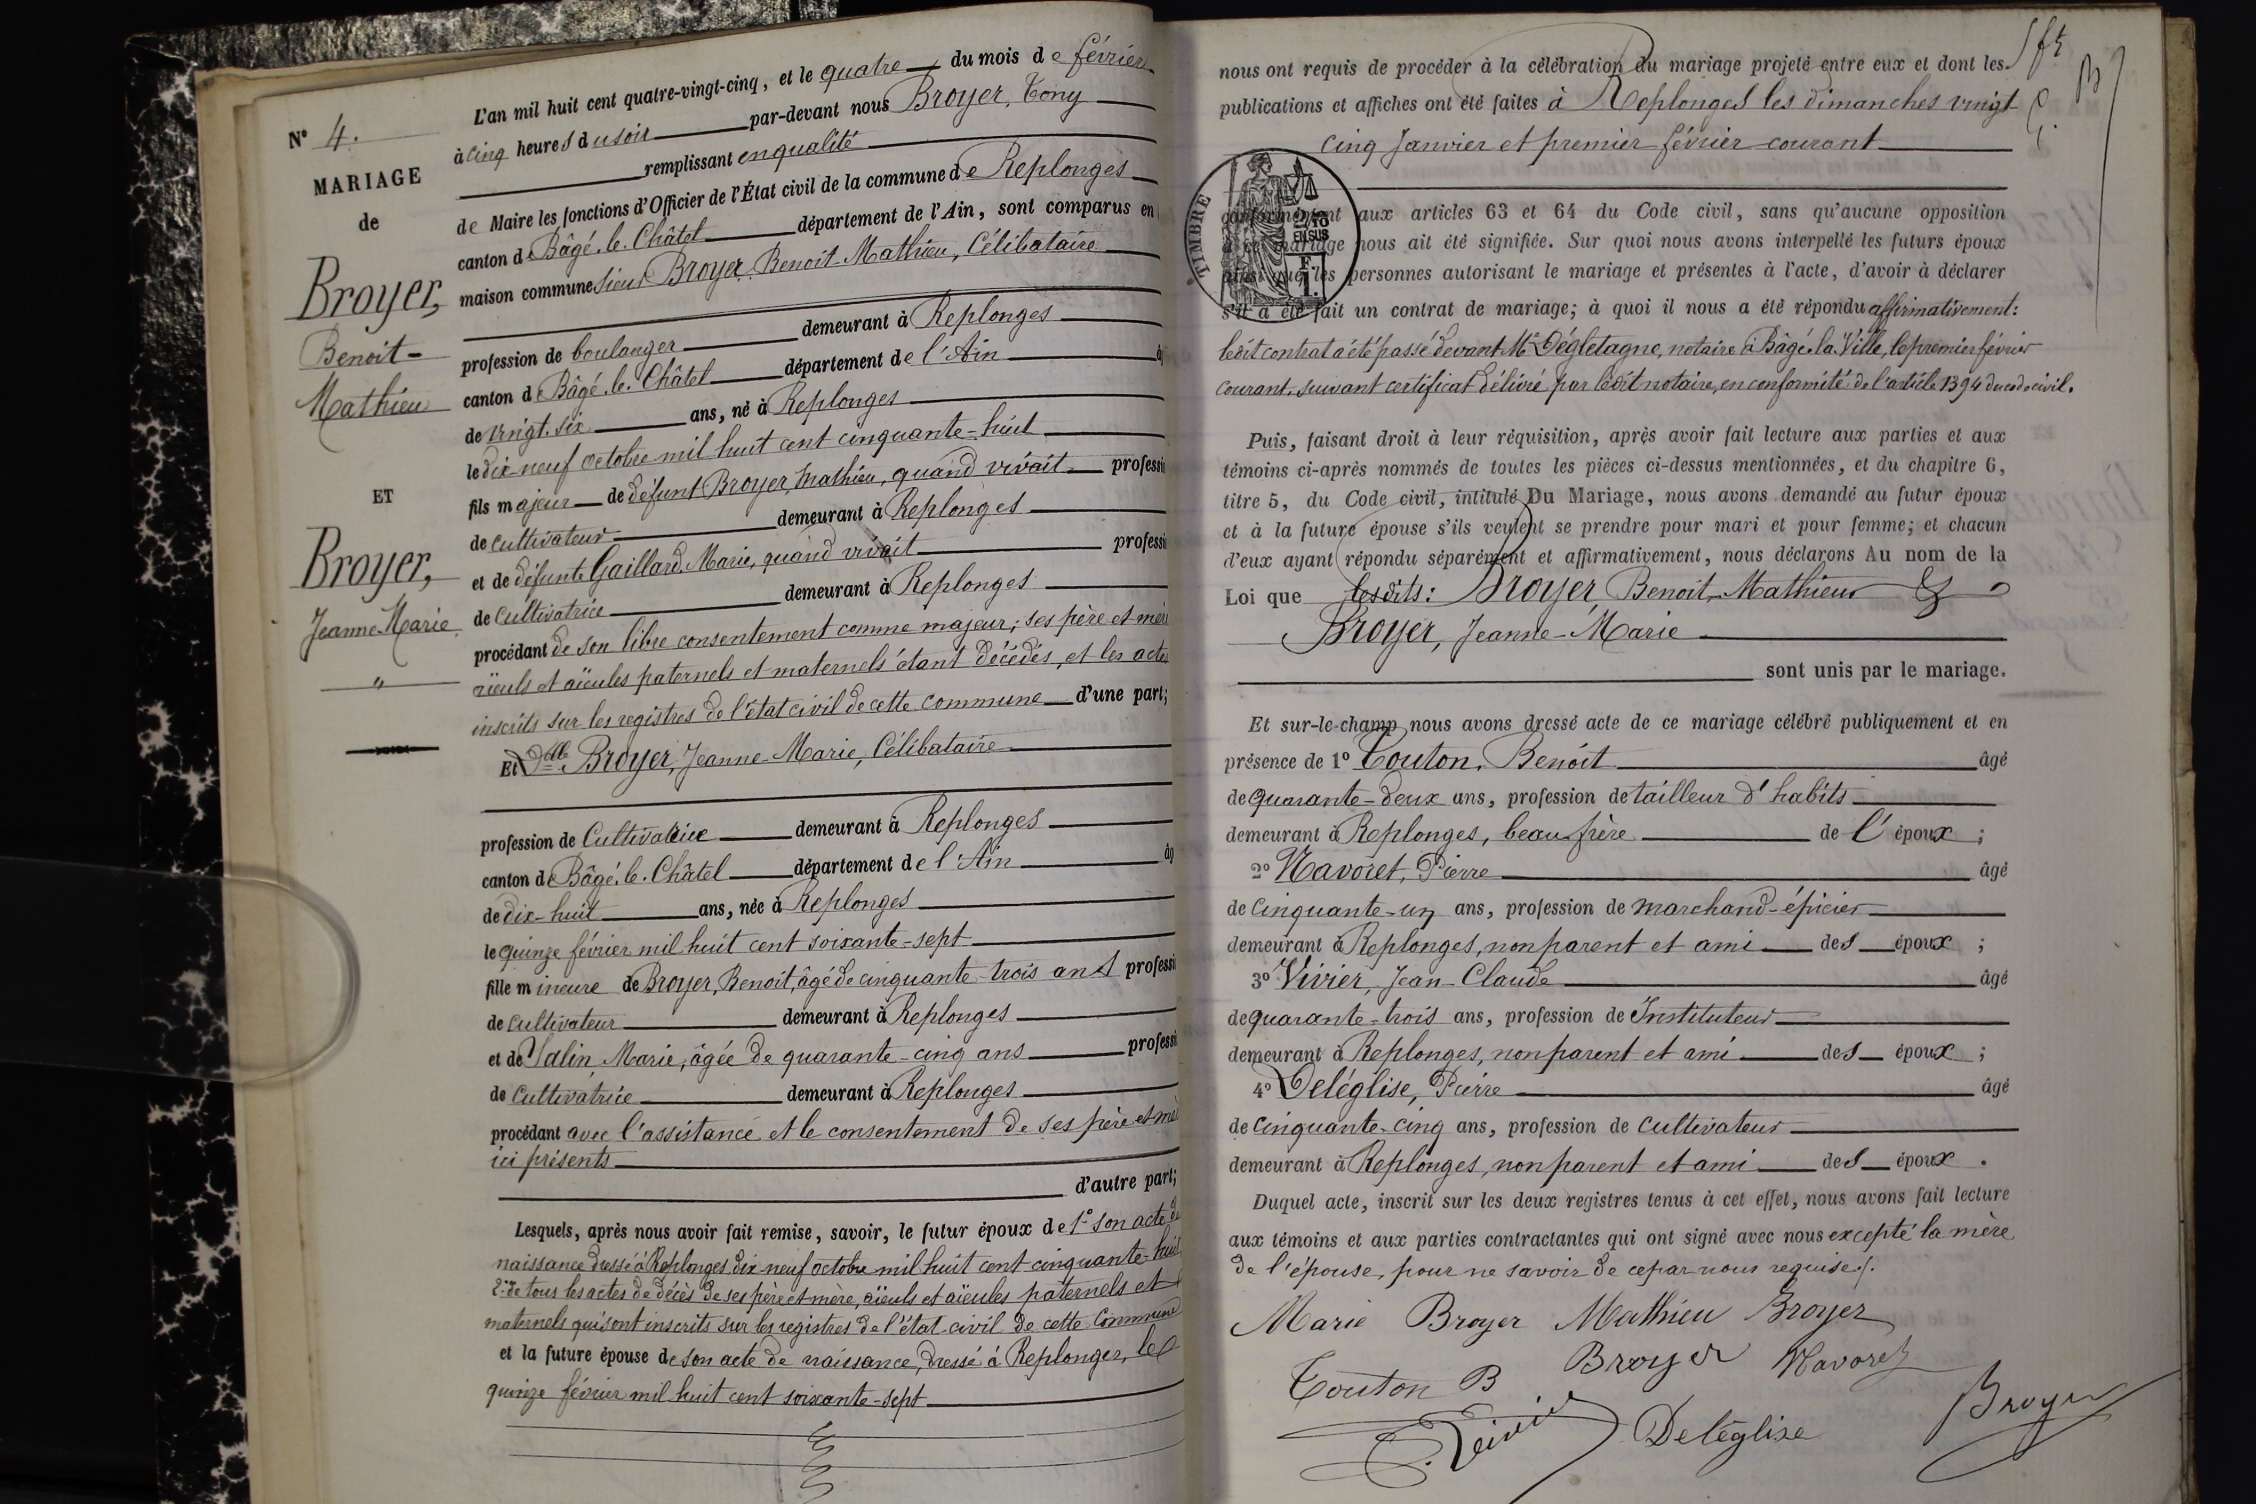 N° 4.
MARIAGE
de
Broyer,
Benoit-
Mathieu
ET
Broyer,
Jeanne-Marie
"
L'an mil huit cent quatre-vingt-cinq, et le quatre du mois de février
à cinq heures du soir par-devant nous Broyer, Tony
remplissant en qualité
de Maire les fonctions d'Officier de l'État civil de la commune de Replonges
canton de Bâgé-le-Châtel département de l'Ain, sont comparus en
maison commune Sieur Broyer Benoit Mathieu, Célibataire
profession de boulanger demeurant à Replonges
canton de Bâgé-le-Châtel département de l'Ain
de vingt-six ans, né à Replonges
le dix-neuf octobre mil huit cent cinquante-huit
fils majeur de défunt Broyer, Mathieu, quand vivait professi
de cultivateur demeurant à Replonges
et de défunte Gaillard Marie, quand vivait professi
de cultivatrice demeurant à Replonges
procédant de son libre consentement comme majeur; ses père et mère
aïeuls et aïeules paternels et maternels étant décédés, et les actes
inscrits sur les registres de l'état civil de cette commune d'une part;
Et Dlle Broyer, Jeanne-Marie, Célibataire
profession de Cultivatrice demeurant à Replonges
canton de Bâgé-le-Châtel département de l'Ain
de dix-huit ans, née à Replonges
le quinze février mil huit cent soixante-sept
fille mineure de Broyer, Benoit, âgé de cinquante-trois ans professi
de cultivateur demeurant à Replonges
et de Salin, Marie, âgée de quarante-cinq ans professi
de cultivatrice demeurant à Replonges
procédant avec l'assistance et le consentement de ses père et mè
ici présents
d'autre part;
Lesquels, après nous avoir fait remise, savoir, le futur époux de 1° son acte de
naissance dressé à Replonges dix-neuf octobre mil huit cent cinquante-huit
2° de tous les actes de décès de ses père et mère, aïeuls et aïeules paternels et
maternels qui sont inscrits sur les registres de l'état-civil de cette Commune
et la future épouse de son acte de naissance, dressé à Replonges, le
quinze février mil huit cent soixante-sept
nous ont requis de procéder à la célébration du mariage projeté entre eux et dont les
publications et affiches ont été faites à Replonges les dimanches vingt
cinq Janvier et premier février courant
TIMBRE
2/10
EN SUS
F.
1.
conformément aux articles 63 et 64 du Code civil, sans qu'aucune opposition
à ce mariage nous ait été signifiée. Sur quoi nous avons interpellé les futurs époux
ainsi que les personnes autorisant le mariage et présentes à l'acte, d'avoir à déclarer
s'il a été fait un contrat de mariage; à quoi il nous a été répondu affirmativement:
ledit contrat a été passé devant Me Dégletagne, notaire à Bâgé-la-Ville, le premier février
courant, suivant certificat délivré par ledit notaire, en conformité de l'article 1394 du code civil.
Puis, faisant droit à leur réquisition, après avoir fait lecture aux parties et aux
témoins ci-après nommés de toutes les pièces ci-dessus mentionnées, et du chapitre 6,
titre 5, du Code civil, intitulé Du Mariage, nous avons demandé au futur époux
et à la future épouse s'ils veulent se prendre pour mari et pour femme; et chacun
d'eux ayant répondu séparément et affirmativement, nous déclarons Au nom de la
Loi que lesdits: Broyer Benoit-Mathieu &
Broyer, Jeanne-Marie
sont unis par le mariage.
Et sur-le-champ nous avons dressé acte de ce mariage célébré publiquement et en
présence de 1° Touton, Benoit âgé
de quarante-deux ans, profession de tailleur d'habits
demeurant à Replonges, beau-frère de l'époux;
2° Navoret, Pierre âgé
de cinquante-un ans, profession de marchand-épicier
demeurant à Replonges, non parent et ami des époux;
3° Vivier, Jean-Claude âgé
de quarante-trois ans, profession de Instituteur
demeurant à Replonges, non parent et ami des époux;
4° Deléglise, Pierre âgé
de cinquante-cinq ans, profession de cultivateur
demeurant à Replonges, non parent et ami des époux.
Duquel acte, inscrit sur les deux registres tenus à cet effet, nous avons fait lecture
aux témoins et aux parties contractantes qui ont signé avec nous excepté la mère
de l'épouse, pour ne savoir de ce par nous requise./.
Marie Broyer Mathieu Broyer
Touton B Broyer Navoret
Vivier Deléglise Broyer